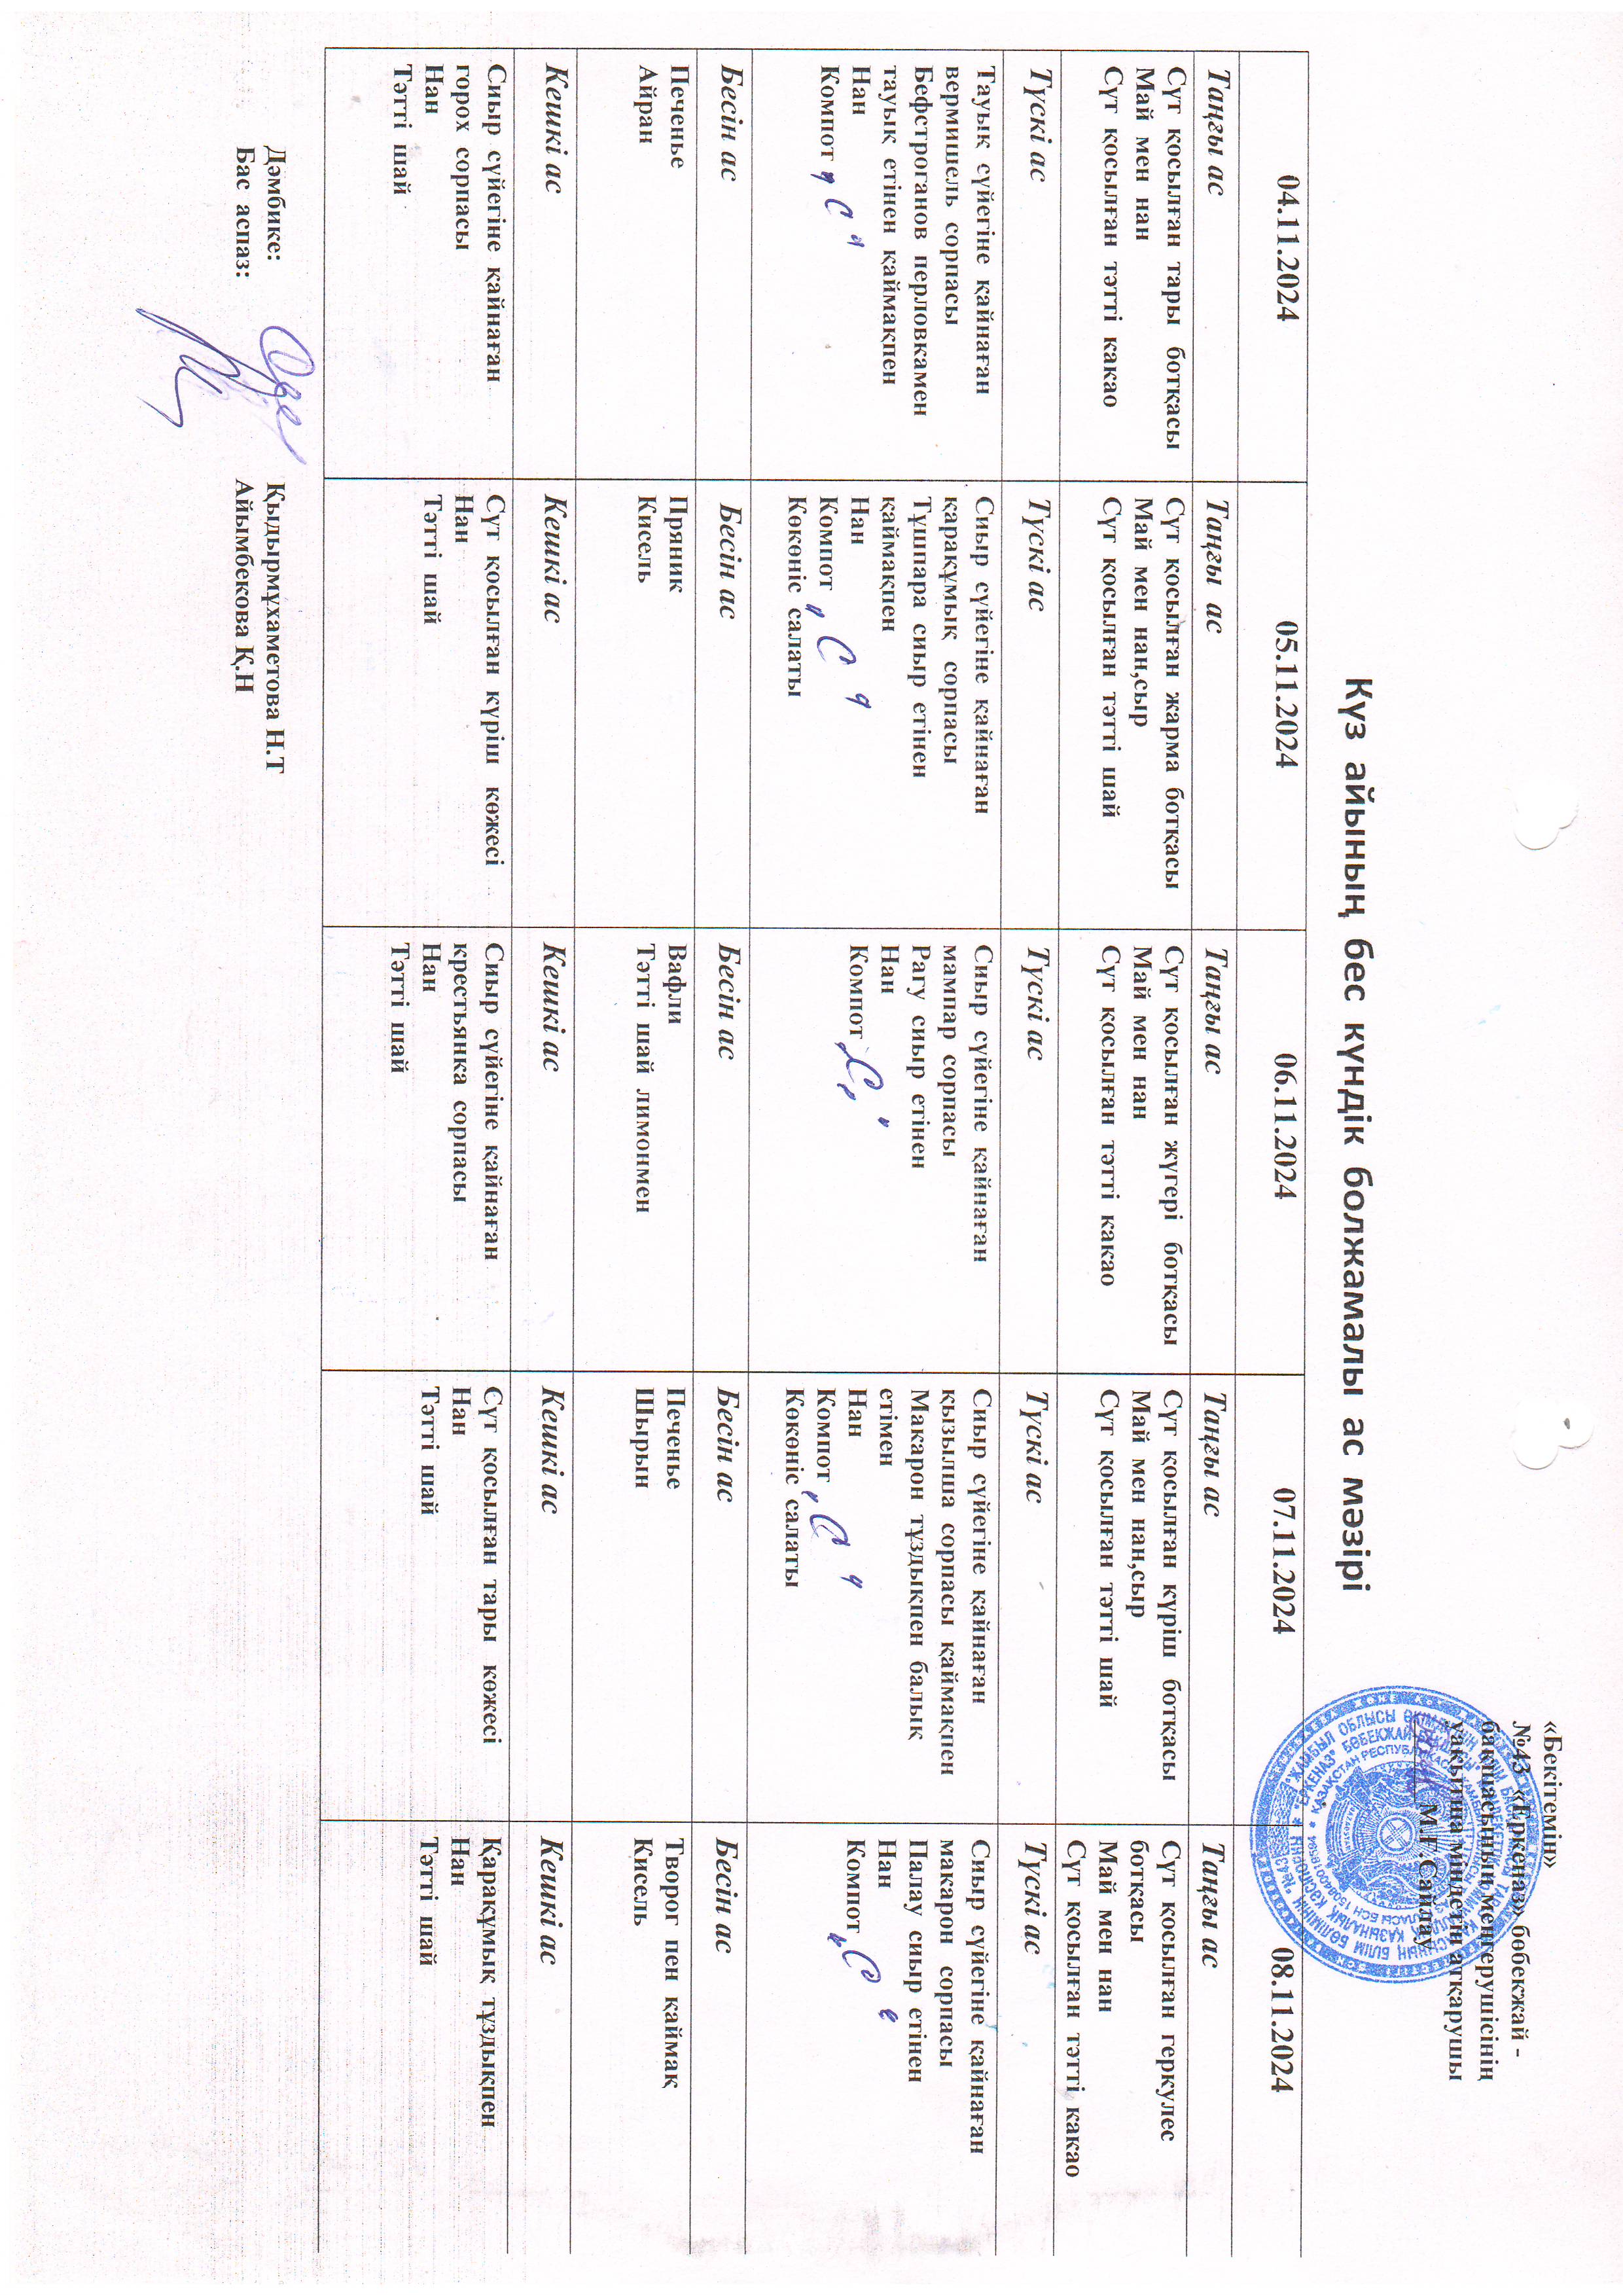 «Бекітемін»
№43 «Еркеназ» бөбекжай -
бақшасының меңгерушісінің
уақытша міндетін атқарушы
М.Г.Сайлау
Күз айының бес күндік болжамалы ас мәзірі
04.11.2024
05.11.2024
06.11.2024
07.11.2024
08.11.2024
Таңғы ас
Таңғы ас
Таңғы ас
Таңғы ас
Таңғы ас
Сүт қосылған тары ботқасы
Май мен нан
Сүт қосылған тәтті какао
Сүт қосылған жарма ботқасы
Май мен нан,сыр
Сүт қосылған тәтті шай
Сүт қосылған жүгері ботқасы
Май мен нан
Сүт қосылған тәтті какао
Сүт қосылған күріш ботқасы
Май мен нан,сыр
Сүт қосылған тәтті шай
Сүт қосылған геркулес
ботқасы
Май мен нан
Сүт қосылған тәтті какао
Түскі ас
Түскі ас
Түскі ас
Түскі ас
Түскі ас
Тауық сүйегіне қайнаған
вермишель сорпасы
Бефстроганов перловкамен
тауық етінен қаймақпен
Нан
Компот
Сиыр сүйегіне қайнаған
қарақұмық сорпасы
Тұшпара сиыр етінен
қаймақпен
Нан
Компот
Көкөніс салаты
Сиыр сүйегіне қайнаған
мампар сорпасы
Рагу сиыр етінен
Нан
Компот
Сиыр сүйегіне қайнаған
қызылша сорпасы қаймақпен
Макарон тұздықпен балық
етімен
Нан
Компот
Көкөніс салаты
Сиыр сүйегіне қайнаған
макарон сорпасы
Палау сиыр етінен
Нан
Компот
Бесін ас
Бесін ас
Бесін ас
Бесін ас
Бесін ас
Печенье
Айран
Пряник
Кисель
Вафли
Тәтті шай лимонмен
Печенье
Шырын
Творог пен қаймақ
Кисель
Кешкі ас
Кешкі ас
Кешкі ас
Кешкі ас
Кешкі ас
Сиыр сүйегіне қайнаған
горох сорпасы
Нан
Тәтті шай
Сүт қосылған күріш көжесі
Нан
Тәтті шай
Сиыр сүйегіне қайнаған
крестьянка сорпасы
Нан
Тәтті шай
Сүт қосылған тары көжесі
Нан
Тәтті шай
Қарақұмық тұздықпен
Нан
Тәтті шай
Дәмбике: Қыдырмұхаметова Н.Т
Бас аспаз: Айымбекова Қ.Н